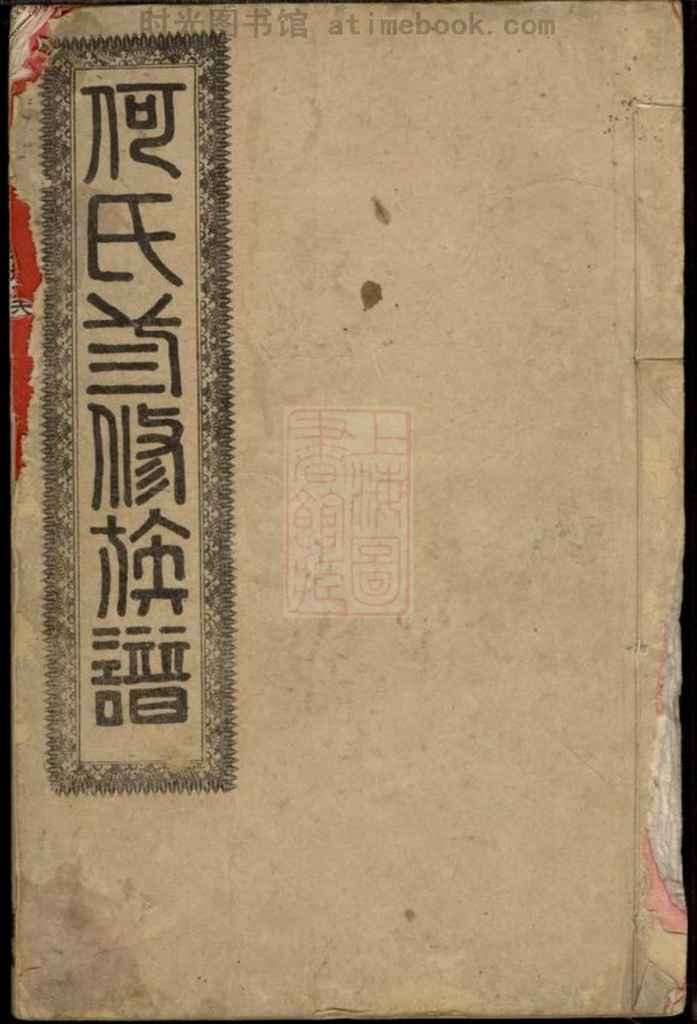 时光图书馆 atimebook.com
何氏弎修族譜
上海圖
書館藏